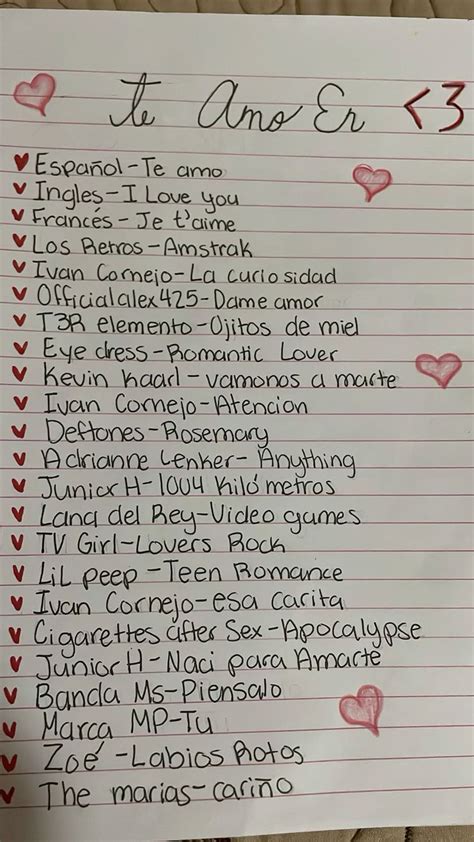 te Amo En <3
Español-Te amo
Ingles-I Love you
Francés-Je t'aime
Los Retros-Amstrak
Ivan Cornejo-La curiosidad
Officialalex425-Dame amor
T3R elemento-Ojitos de miel
Eye dress-Romantic Lover
Kevin Kaarl-vamonos a marte
Ivan Cornejo-Atencion
Deftones-Rosemary
Adrianne Lenker-Anything
Junior H-1004 Kilómetros
Lana del Rey-Video games
TV Girl-Lovers Rock
LiL peep-Teen Romance
Ivan Cornejo-esa carita
Cigarettes after Sex-Apocalypse
Junior H-Naci para Amarte
Banda Ms-Piensalo
Marca MP-Tu
Zoé-Labios Rotos
The marias-cariño